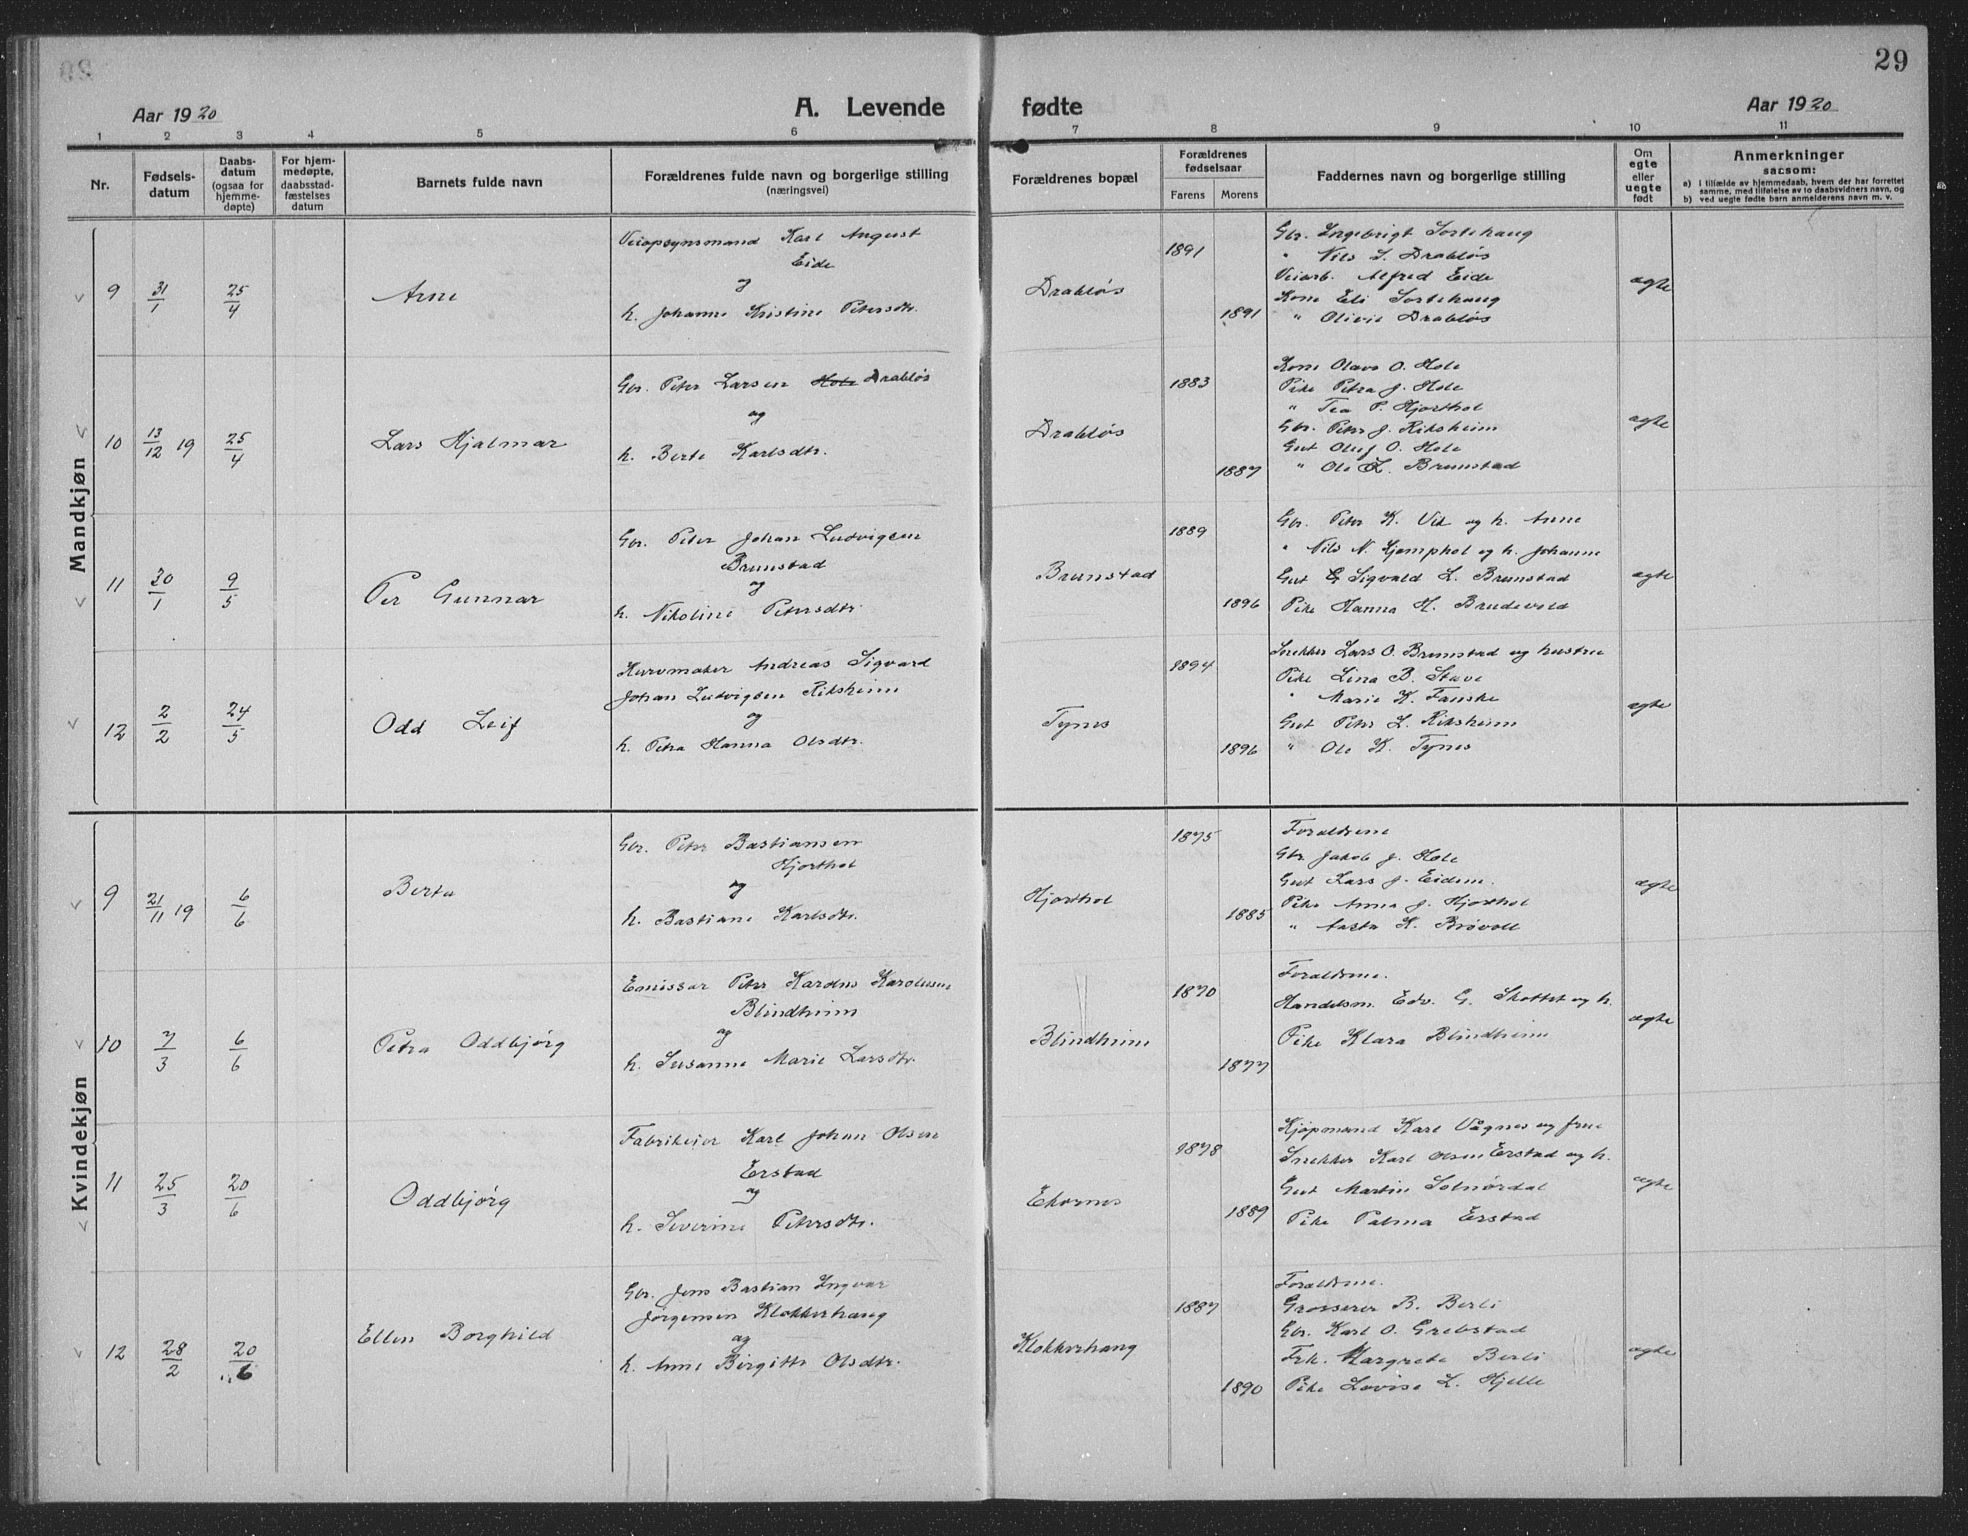 29
Aar 1920
A. Levende fødte
Aar 1920
1 2 3 4 5 6 7 8 9 10 11
Nr.
Fødsels-
datum
Daabs-
datum
(ogsaa for
hjemme-
døpte)
For hjem-
medøpte,
daabsstad-
fæstelses
datum
Barnets fulde navn
Forældrenes fulde navn og borgerlige stilling
(næringsvei)
Forældrenes bopæl
Forældrenes
fødselsaar
Farens Morens
Faddernes navn og borgerlige stilling
Om
egte
eller
uegte
født
Anmerkninger
saasom:
a) i tilfælde av hjemmedaab, hvem der har forrettet
samme, med tilføielse av to daabsvidners navn, og
b) ved uegte fødte barn anmelderens navn m. v.
Mandkjøn
9 31/1 25/4 Arne
Veiopsynsmand Karl August
Eide
og
h. Johanne Kristine Petersdtr.
Drabløs
1891
1891
Gbr. Ingebrigt Sortehaug
" Nils L. Drabløs
Veiarb. Alfred Eide
Kone Eli Sortehaug
" Olivie Drabløs
egte
10 13/12 19 25/4 Lars Hjalmar
Gbr. Peter Larsen Hole Drabløs
og
h. Berte Karlsdtr.
Drabløs
1883
1887
Kone Olava O. Hole
Pike Petra J. Hole
" Tea P. Hjorthol
Gbr. Peter J. Riksheim
Gut Oluf O. Hole
" Ole L. Brunstad
egte
11 30/1 9/5 Per Gunnar
Gbr. Peter Johan Ludvigsen
Brunstad
og
h. Nikoline Petersdtr.
Brunstad
1889
1896
Gbr. Peter K. Vik og h. Anne
" Nils N. Ljemphol og h. Johanne
Gut Sigvald L. Brunstad
Pike Hanna H. Brudevold
egte
12 2/2 24/5 Odd Leif
Kurvmaker Andreas Sigvard
Johan Ludvigsen Riksheim
og
h. Petra Hanna Olsdtr.
Tynes
1894
1896
Snekker Lars O. Brunstad og hustru
Pike Lina B. Stave
" Marie K. Fauske
Gut Peter L. Riksheim
" Ole K. Tynes
egte
Kvindekjøn
9 21/11 19 6/6 Berta
Gbr. Peter Bastiansen
Hjorthol
og
h. Bastiane Karlsdtr.
Hjorthol
1875
1885
Forældrene
Gbr. Jakob J. Hole
Gut Lars J. Eidem.
Pike Anna J. Hjorthol
" Aasta K. Brøvoll
egte
10 7/3 6/6 Petra Oddbjørg
Emissær Peter Karolus Karolusen
Blindheim
og
h. Susanne Marie Larsdtr.
Blindheim
1870
1877
Forældrene.
Handelsm. Edv. G. Skottet og h.
Pike Klara Blindheim
egte
11 25/3 20/6 Oddbjørg
Fabrikeier Karl Johan Olsen
Erstad
og
h. Severine Petersdtr.
Ekornes
1878
1889
Kjøpmand Karl Vågnes og frue
Snekker Karl Olsen Erstad og h.
Gut Martin Solnørdal
Pike Palma Erstad
egte
12 28/2 20/6 Ellen Borghild
Gbr. Jens Bastian Ingvar
Jørgensen Klokkerhaug
og
h. Anne Birgitte Olsdtr.
Klokkerhaug
1887
1890
Forældrene.
Grosserer B. Berli
Gbr. Karl O. Grebstad
Frk. Margrete Berli
Pike Lovise L. Hjelle
egte